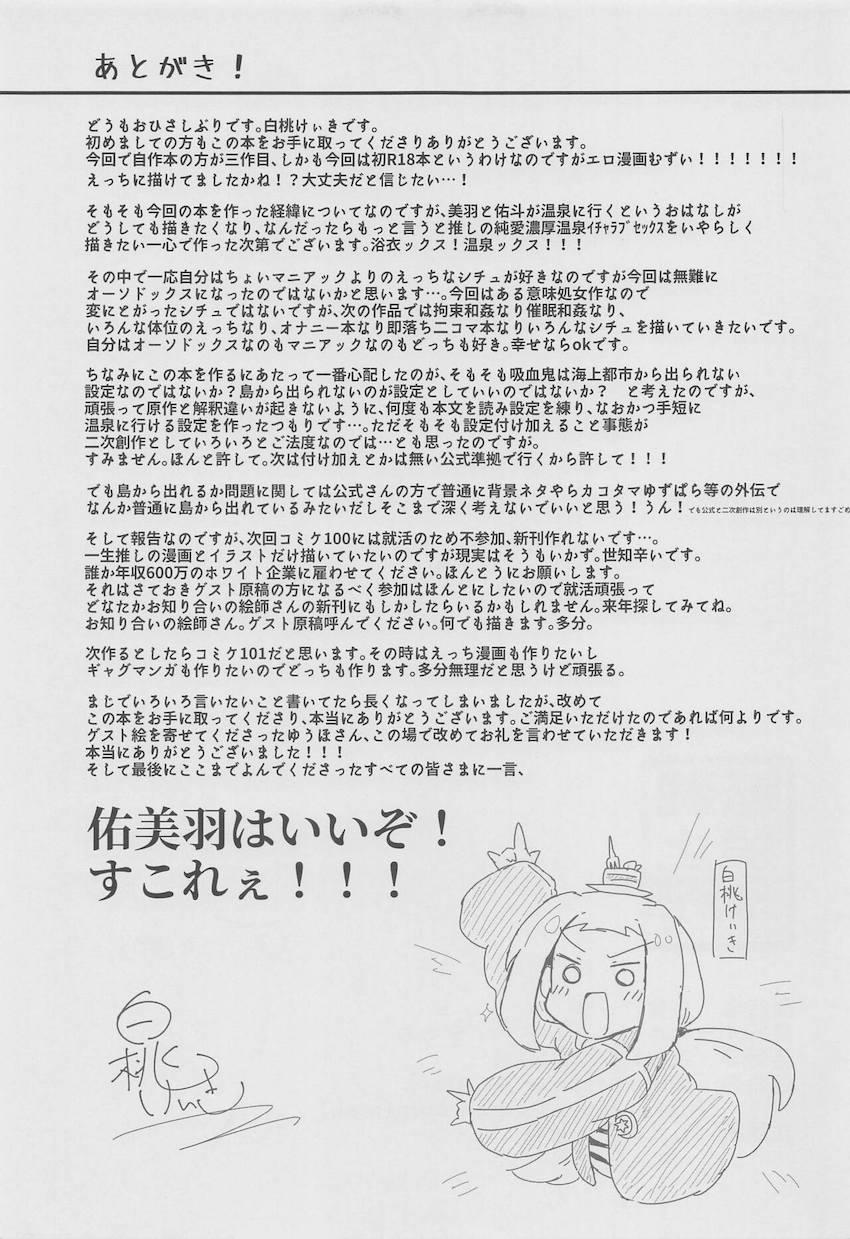 あとがき！
どうもおひさしぶりです。白桃けぃきです。
初めましての方もこの本をお手に取ってくださりありがとうございます。
今回で自作本の方が三作目、しかも今回は初R18本というわけなのですがエロ漫画むずい！！！！！！！
えっちに描けてましたかね！？大丈夫だと信じたい…！
そもそも今回の本を作った経緯についてなのですが、美羽と佑斗が温泉に行くというおはなしが
どうしても描きたくなり、なんだったらもっと言うと推しの純愛濃厚温泉ｲﾁｬﾗﾌﾞｾｯｸｽをいやらしく
描きたい一心で作った次第でございます。浴衣ックス！温泉ックス！！！
その中で一応自分はちょいマニアックよりのえっちなシチュが好きなのですが今回は無難に
オーソドックスになったのではないかと思います…。今回はある意味処女作なので
変にとがったシチュではないですが、次の作品では拘束和姦なり催眠和姦なり、
いろんな体位のえっちなり、オナニー本なり即落ち二コマ本なりいろんなシチュを描いていきたいです。
自分はオーソドックスなのもマニアックなのもどっちも好き。幸せならokです。
ちなみにこの本を作るにあたって一番心配したのが、そもそも吸血鬼は海上都市から出られない
設定なのではないか？島から出られないのが設定としていいのではないか？　と考えたのですが、
頑張って原作と解釈違いが起きないように、何度も本文を読み設定を練り、なおかつ手短に
温泉に行ける設定を作ったつもりです…。ただそもそも設定付け加えること事態が
二次創作としていろいろとご法度なのでは…とも思ったのですが。
すみません。ほんと許して。次は付け加えとかは無い公式準拠で行くから許して！！！
でも島から出れるか問題に関しては公式さんの方で普通に背景ネタやらカコタマゆずぱら等の外伝で
なんか普通に島から出れているみたいだしそこまで深く考えないでいいと思う！うん！でも公式と二次創作は別というのは理解してますごめ
そして報告なのですが、次回コミケ100には就活のため不参加、新刊作れないです…。
一生推しの漫画とイラストだけ描いていたいのですが現実はそうもいかず。世知辛いです。
誰か年収600万のホワイト企業に雇わせてください。ほんとうにお願いします。
それはさておきゲスト原稿の方になるべく参加はほんとにしたいので就活頑張って
どなたかお知り合いの絵師さんの新刊にもしかしたらいるかもしれません。来年探してみてね。
お知り合いの絵師さん。ゲスト原稿呼んでください。何でも描きます。多分。
次作るとしたらコミケ101だと思います。その時はえっち漫画も作りたいし
ギャグマンガも作りたいのでどっちも作ります。多分無理だと思うけど頑張る。
まじでいろいろ言いたいこと書いてたら長くなってしまいましたが、改めて
この本をお手に取ってくださり、本当にありがとうございます。ご満足いただけたのであれば何よりです。
ゲスト絵を寄せてくださったゆうほさん、この場で改めてお礼を言わせていただきます！
本当にありがとうございました！！！
そして最後にここまでよんでくださったすべての皆さまに一言、
佑美羽はいいぞ！
すこれぇ！！！
白桃けぃき
白桃けぃき